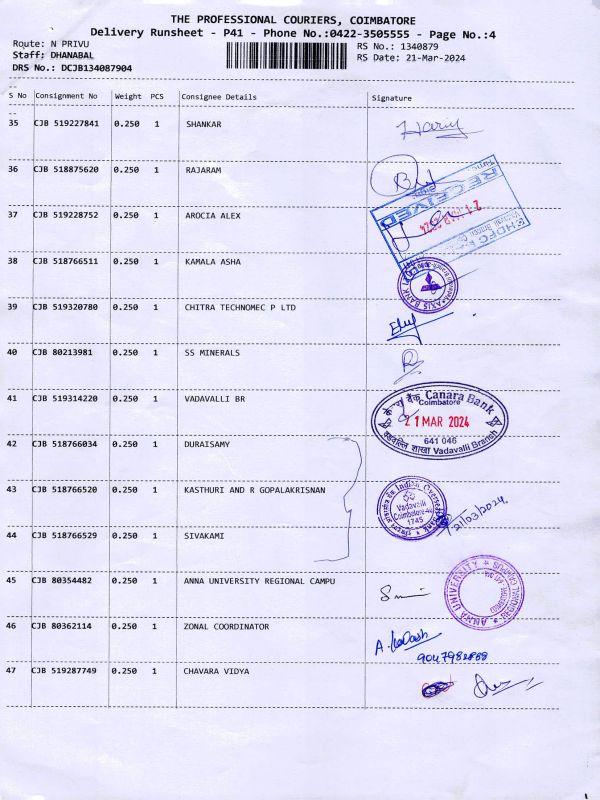 THE PROFESSIONAL COURIERS, COIMBATORE
Delivery Runsheet - P41 - Phone No.:0422-3505555 - Page No.:4
Route: N PRIVU
RS No.: 1340879
Staff: DHANABAL
RS Date: 21-Mar-2024
DRS No.: DCJB134087904
S No Consignment No Weight PCS Consignee Details Signature
35 CJB 519227841 0.250 1 SHANKAR
36 CJB 518875620 0.250 1 RAJARAM
RECEIVED
37 CJB 519228752 0.250 1 AROCIA ALEX
38 CJB 518766511 0.250 1 KAMALA ASHA
AXIS BANK
39 CJB 519320780 0.250 1 CHITRA TECHNOMEC P LTD
40 CJB 80213981 0.250 1 SS MINERALS
41 CJB 519314220 0.250 1 VADAVALLI BR
Canara Bank
Coimbatore
21 MAR 2024
641 046
शाखा Vadavalli Branch
42 CJB 518766034 0.250 1 DURAISAMY
43 CJB 518766520 0.250 1 KASTHURI AND R GOPALAKRISNAN
Indian Overseas Bank
Vadavalli
1745
21/03/2024
44 CJB 518766529 0.250 1 SIVAKAMI
45 CJB 80354482 0.250 1 ANNA UNIVERSITY REGIONAL CAMPU
ANNA UNIVERSITY REGIONAL CAMPUS
46 CJB 80362114 0.250 1 ZONAL COORDINATOR
47 CJB 519287749 0.250 1 CHAVARA VIDYA